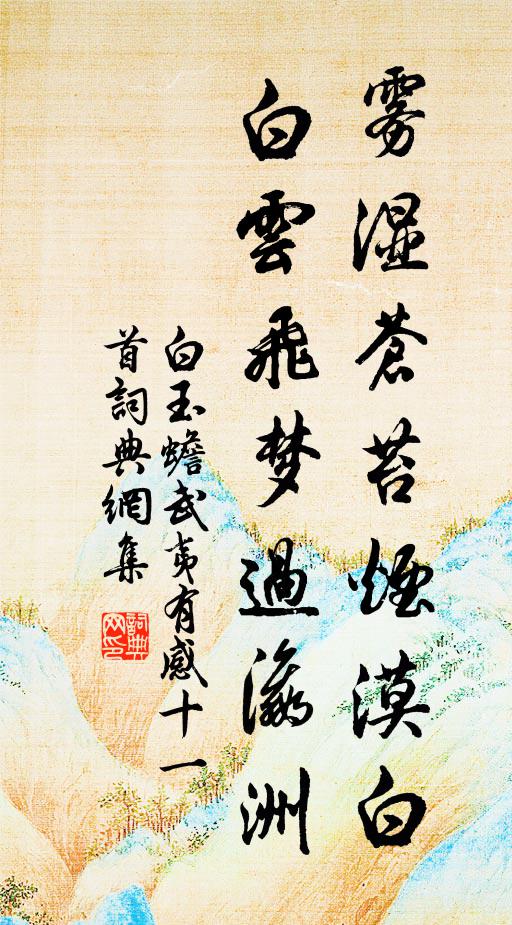 雾湿蒼苔煙漠白
白雲飛梦過瀛洲
白玉蟾武夷有感十一
首詞典網集
詞典
网印